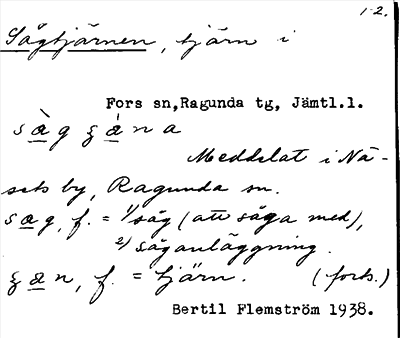 1-2.
Sågtjärnen, tjärn i
Fors sn, Ragunda tg, Jämtl.l.
sàg ʒána
Meddelat i Nä-
sets by, Ragunda sn.
sag, f. = 1/ såg (att såga med),
2/ såganläggning.
ʒan, f. = tjärn. (forts.)
Bertil Flemström 1938.